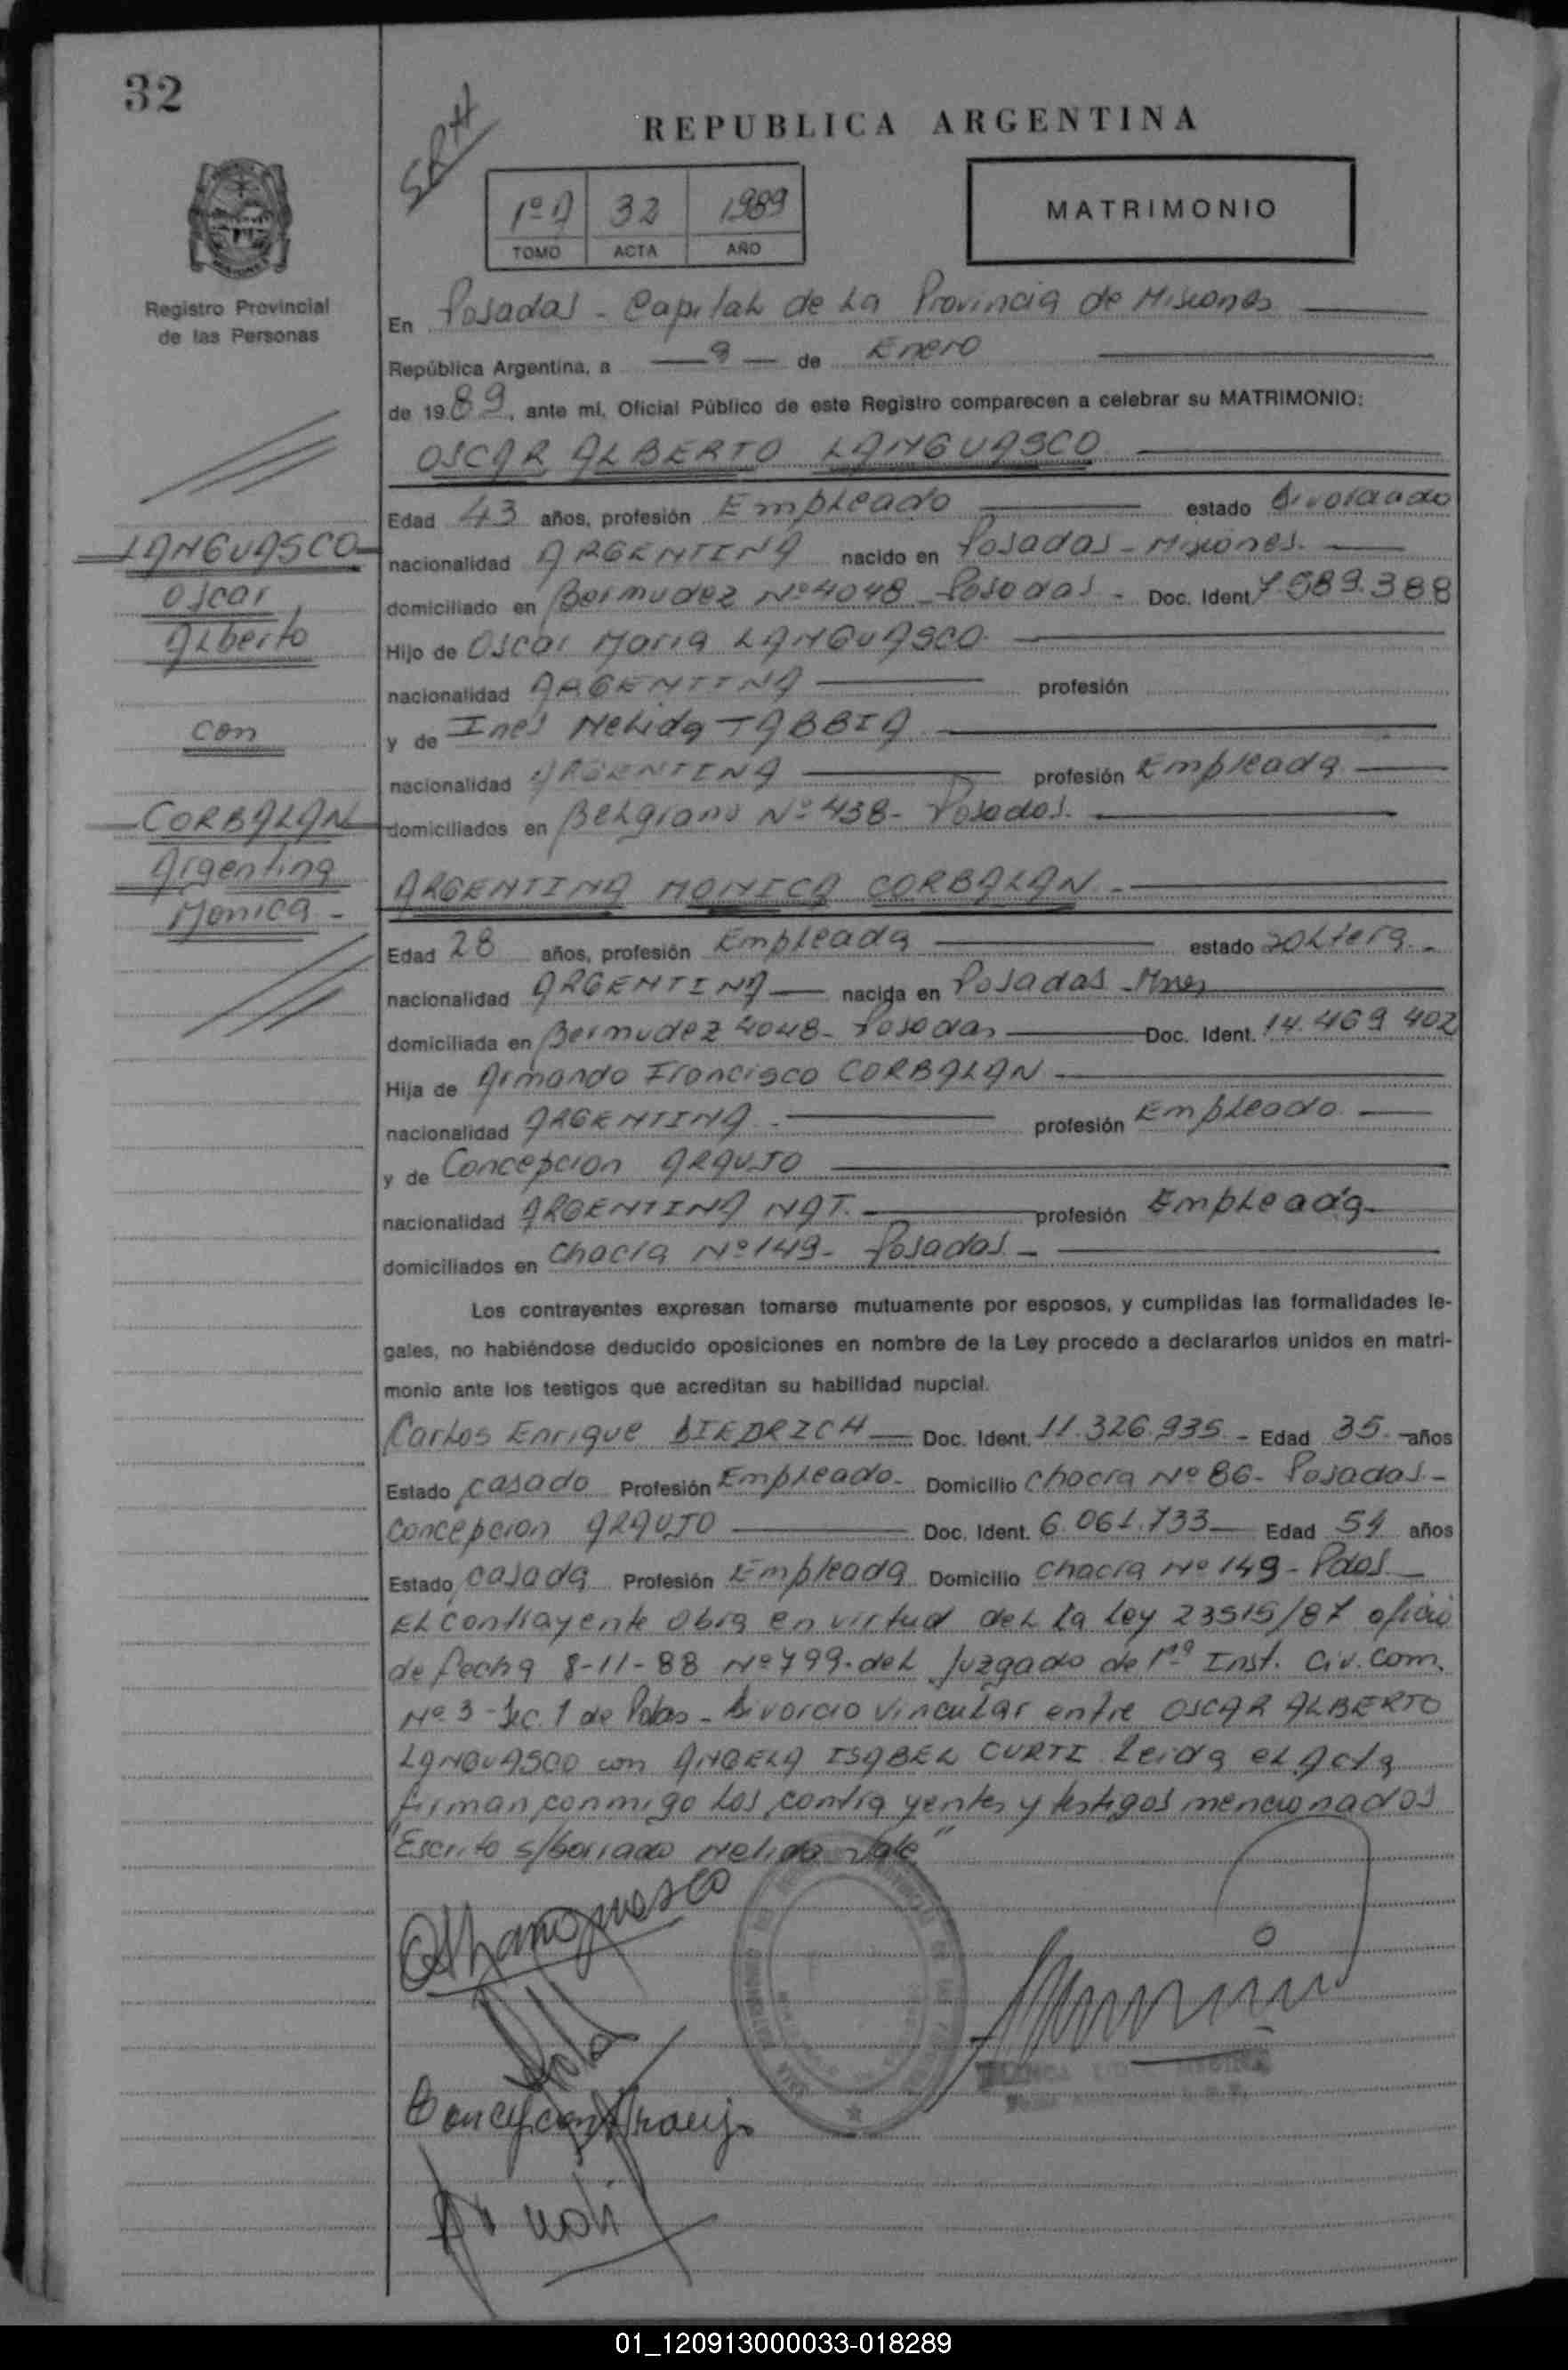 32
REPUBLICA ARGENTINA
1º A 32 1989
TOMO ACTA AÑO
MATRIMONIO
Registro Provincial
de las Personas
En Posadas - Capital de La Provincia de Misiones
República Argentina, a 9 de Enero
de 1989, ante mí, Oficial Público de este Registro comparecen a celebrar su MATRIMONIO:
OSCAR ALBERTO LANGUASCO
Edad 43 años, profesión Empleado estado Divorciado
nacionalidad ARGENTINA nacido en Posadas - Misiones.
domiciliado en Bermudez Nº 4048 - Posadas - Doc. Ident 7.589.388
Hijo de Oscar Maria LANGUASCO
nacionalidad ARGENTINA profesión
y de Inés Nelida TABBIA
nacionalidad ARGENTINA profesión Empleada
domiciliados en Belgrano Nº 438 - Posadas.
LANGUASCO
Oscar
Alberto
con
CORBALAN
Argentina
Monica -
ARGENTINA MONICA CORBALAN -
Edad 28 años, profesión Empleada estado soltera -
nacionalidad ARGENTINA nacida en Posadas - Mnes
domiciliada en Bermudez 4048 - Posadas Doc. Ident. 14.469 402
Hija de Armando Francisco CORBALAN -
nacionalidad ARGENTINA - profesión Empleado
y de Concepcion ARAUJO
nacionalidad ARGENTINA NAT. profesión Empleada
domiciliados en Chacra Nº 149 - Posadas -
Los contrayentes expresan tomarse mutuamente por esposos, y cumplidas las formalidades le-
gales, no habiéndose deducido oposiciones en nombre de la Ley procedo a declararlos unidos en matri-
monio ante los testigos que acreditan su habilidad nupcial.
Carlos Enrique DIEDRICH Doc. Ident. 11.326.935 - Edad 35 años
Estado casado Profesión Empleado - Domicilio chacra Nº 86 - Posadas -
Concepcion ARAUJO Doc. Ident. 6.061.733 Edad 54 años
Estado casada Profesión Empleada Domicilio chacra Nº 149 - Pdas.
El contrayente obra en virtud del la Ley 23515/87 oficio
de fecha 8-11-88 Nº 799 - del Juzgado de 1ra Inst. Civ. Com.
Nº 3 - Sec. 1 de Pdas - Divorcio Vincular entre OSCAR ALBERTO
LANGUASCO con ANGELA ISABEL CURTI Leida el Acta
firman conmigo los contrayentes y testigos mencionados
"Escrito s/borrado Nelida Vale"
Concepcion Araujo
01_120913000033-018289